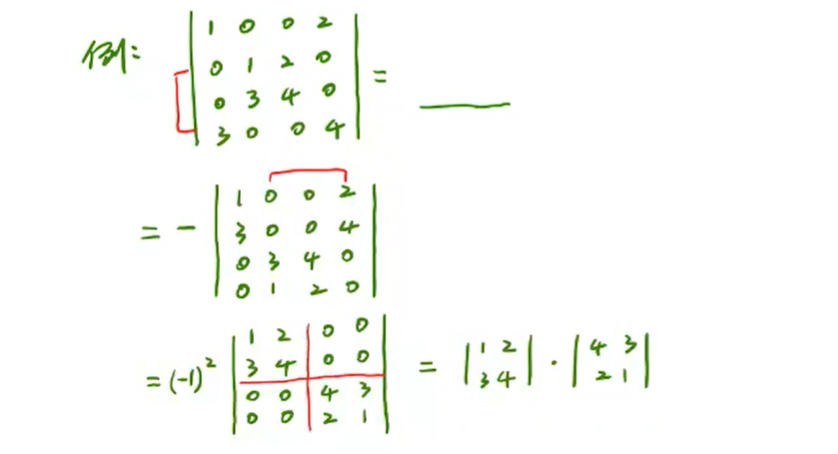 例:
| 1 0 0 2 |
| 0 1 2 0 |
| 0 3 4 0 | = ____
| 3 0 0 4 |
= - | 1 0 0 2 |
| 3 0 0 4 |
| 0 3 4 0 |
| 0 1 2 0 |
= (-1)² | 1 2 | 0 0 |
| 3 4 | 0 0 |
| 0 0 | 4 3 |
| 0 0 | 2 1 |
= | 1 2 | · | 4 3 |
| 3 4 | | 2 1 |